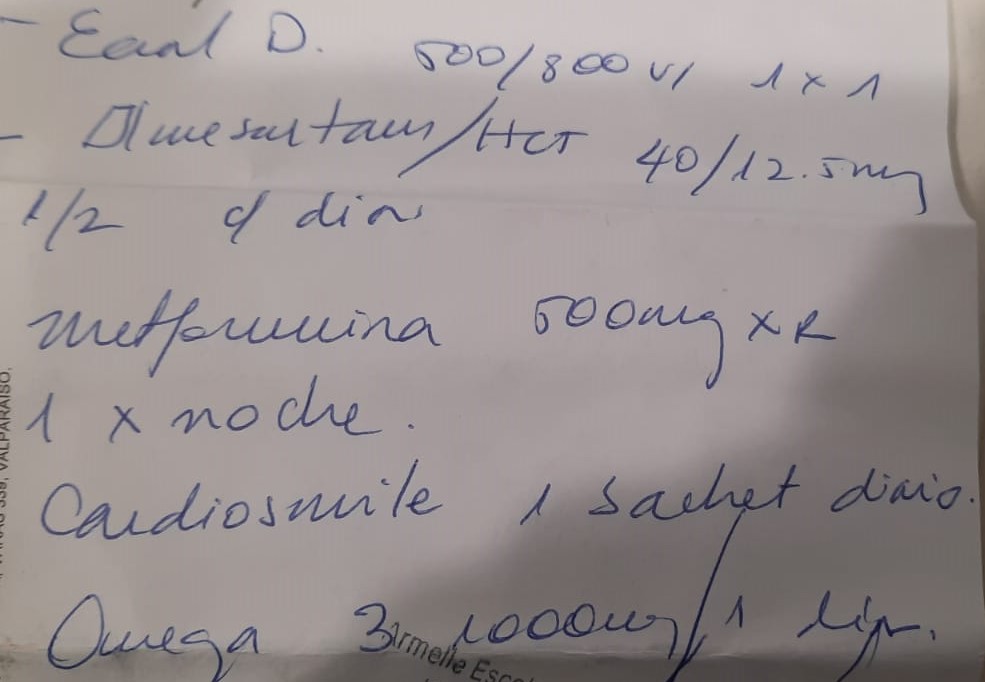 - Ecal D. 500/800 UI 1 x 1
- Olmesartan/HCT 40/12.5mg
1/2 c/ dia
Metformina 500mg XR
1 x noche.
Cardiosmile 1 sachet diario.
Omega 3 1000mg / 1
339, VALPARAISO,
Armelle